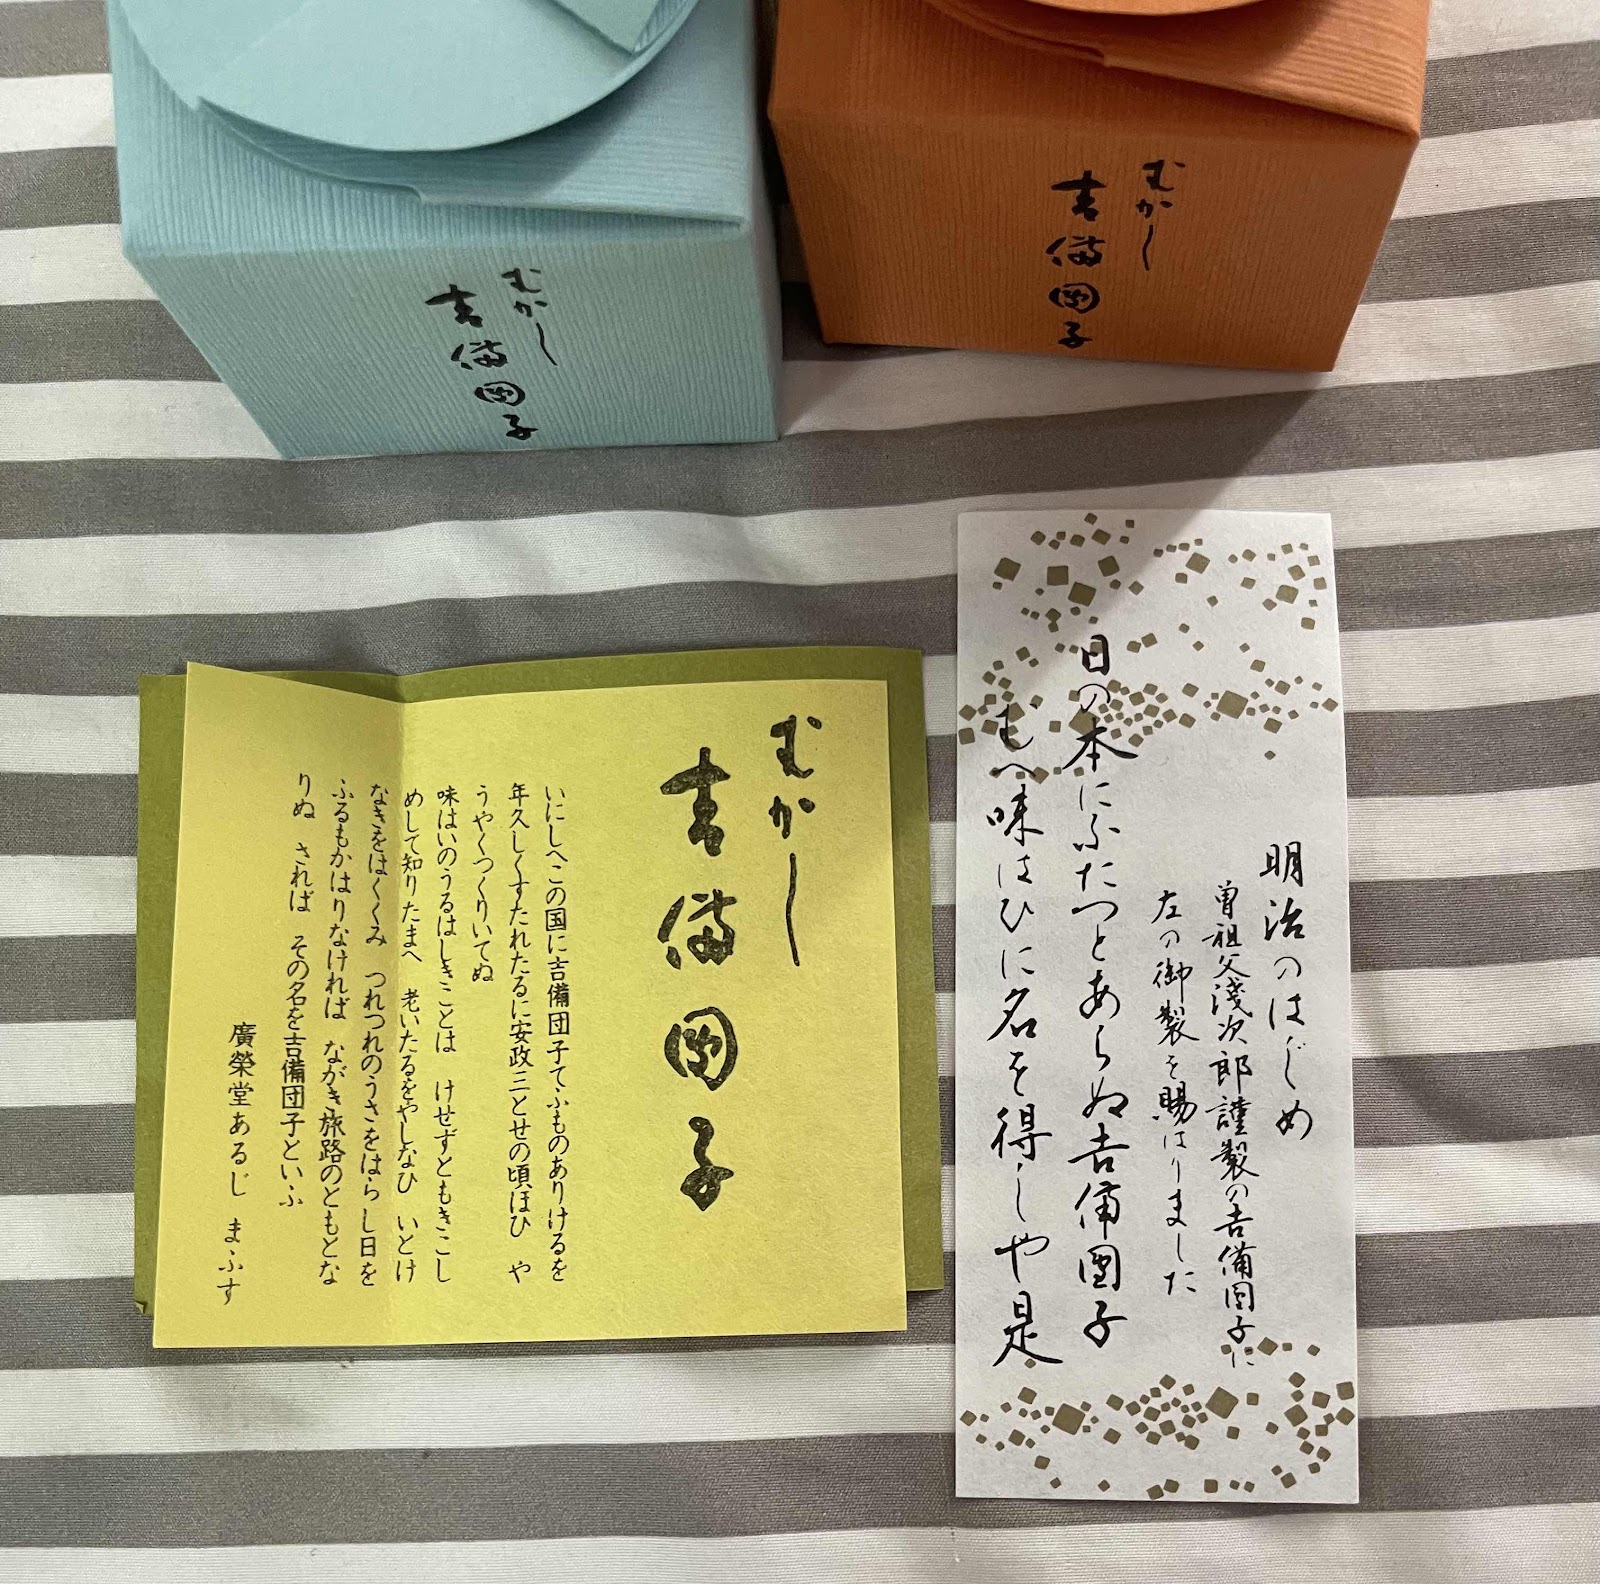 むかし
吉備団子
むかし
吉備団子
むかし
吉備団子
いにしへこの国に吉備団子てふものありけるを
年久しくすたれたるに安政三とせの頃ほひ や
うやくつくりいてぬ
味はいのうるはしきことは けせずともきこし
めして知りたまへ 老いたるをやしなひ いとけ
なきをはくくみ つれつれのうさをはらし日を
ふるもかはりなければ ながき旅路のともとな
りぬ されば その名を吉備団子といふ
廣榮堂あるじ まふす
明治のはじめ
曽祖父淺次郎謹製の吉備団子に
左の御製を賜はりました
日の本にふたつとあらぬ吉備団子
むへ味はひに名を得しや是